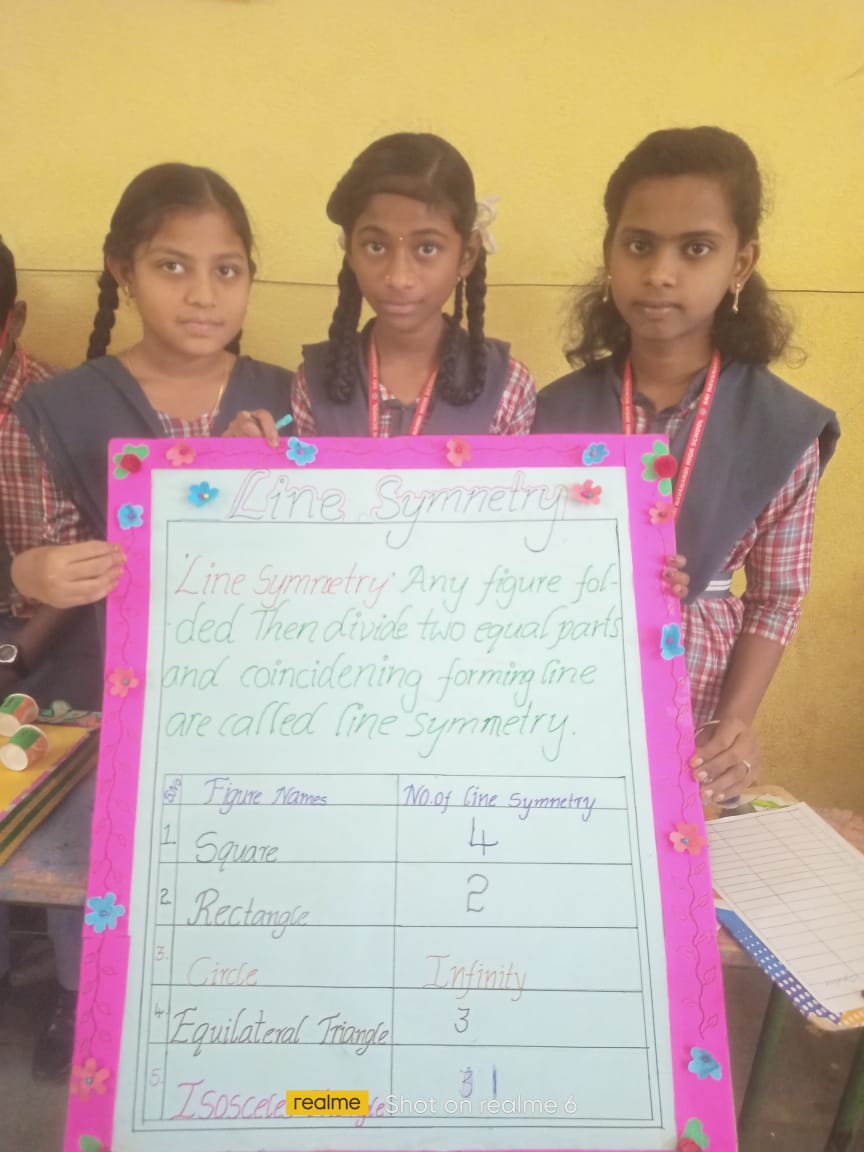 Line Symnetry
'Line Symmetry' Any figure fol-
-ded Then divide two equal parts
and coincidening forming line
are called line symmetry.
S.No Figure Names No.of line Symnetry
1. Square 4
2. Rectangle 2
3. Circle Infinity
4. Equilateral Triangle 3
5. Isosceles 1
realme Shot on realme 6
HIGH SCHOOL